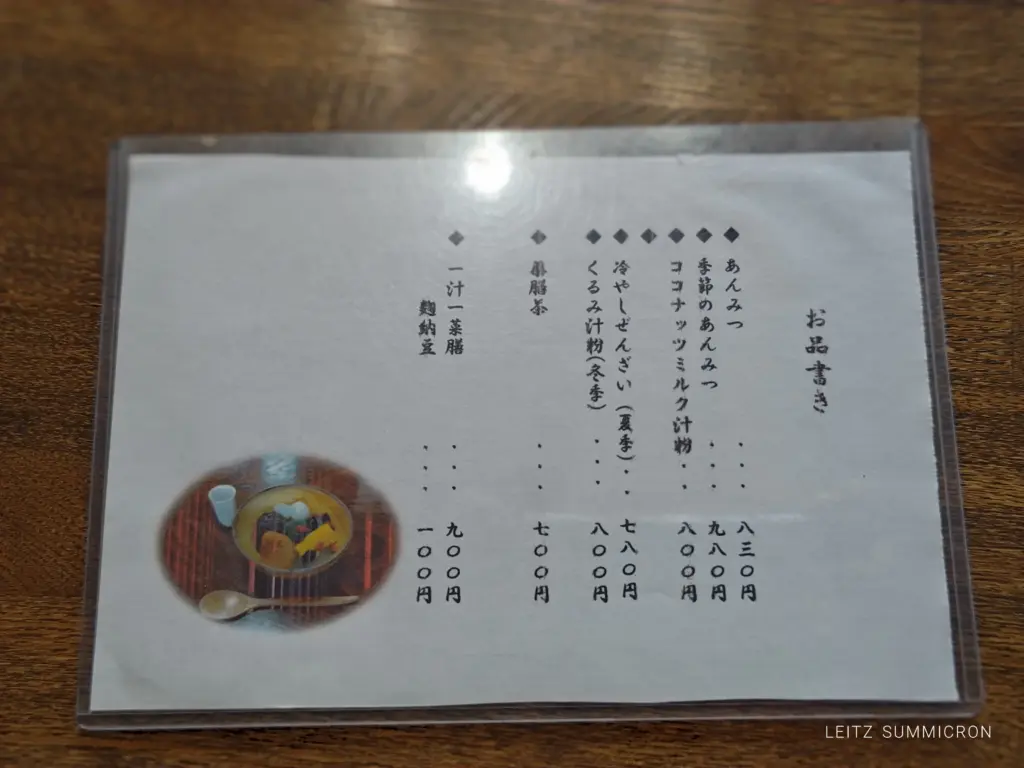 お品書き
◆ あんみつ ・・・ 八三〇円
◆ 季節のあんみつ ・・・ 九八〇円
◆ ココナッツミルク汁粉 ・・ 八〇〇円
◆
◆ 冷やしぜんざい（夏季）・・ 七八〇円
◆ くるみ汁粉（冬季）・・・ 八〇〇円
◆ 薬膳茶 ・・・ 七〇〇円
◆ 一汁一菜膳 ・・・ 九〇〇円
麹納豆 ・・・ 一〇〇円
LEITZ SUMMICRON